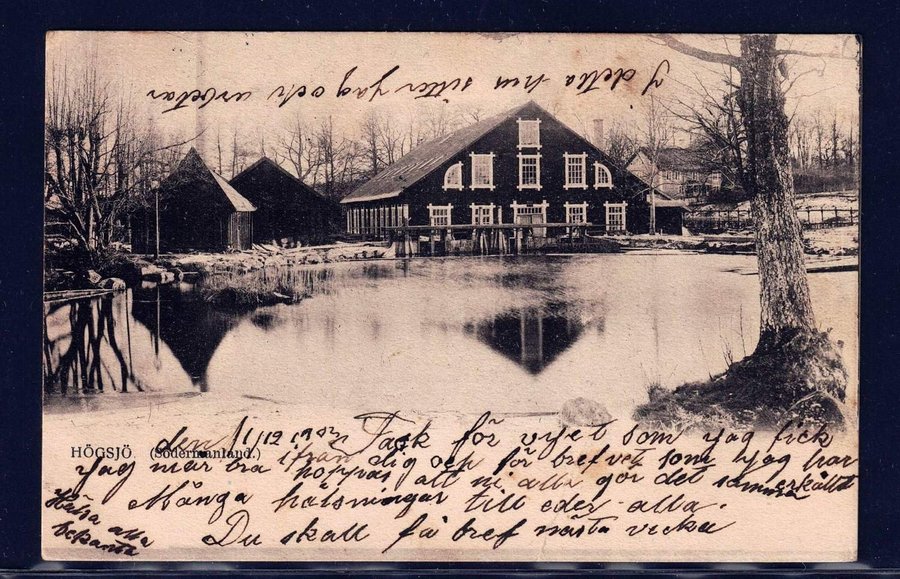 I detta hus sitter jag och arbetar
HÖGSJÖ (Södermanland.)
den 1/12 Tack för vyket som jag fick
ifrån dig och för brefvet som jag har erhållit
Jag mår bra hoppas att ni alla gör det samma
Många hälsningar till eder alla.
Hälsa alla bekanta
Du skall få bref nästa vicka